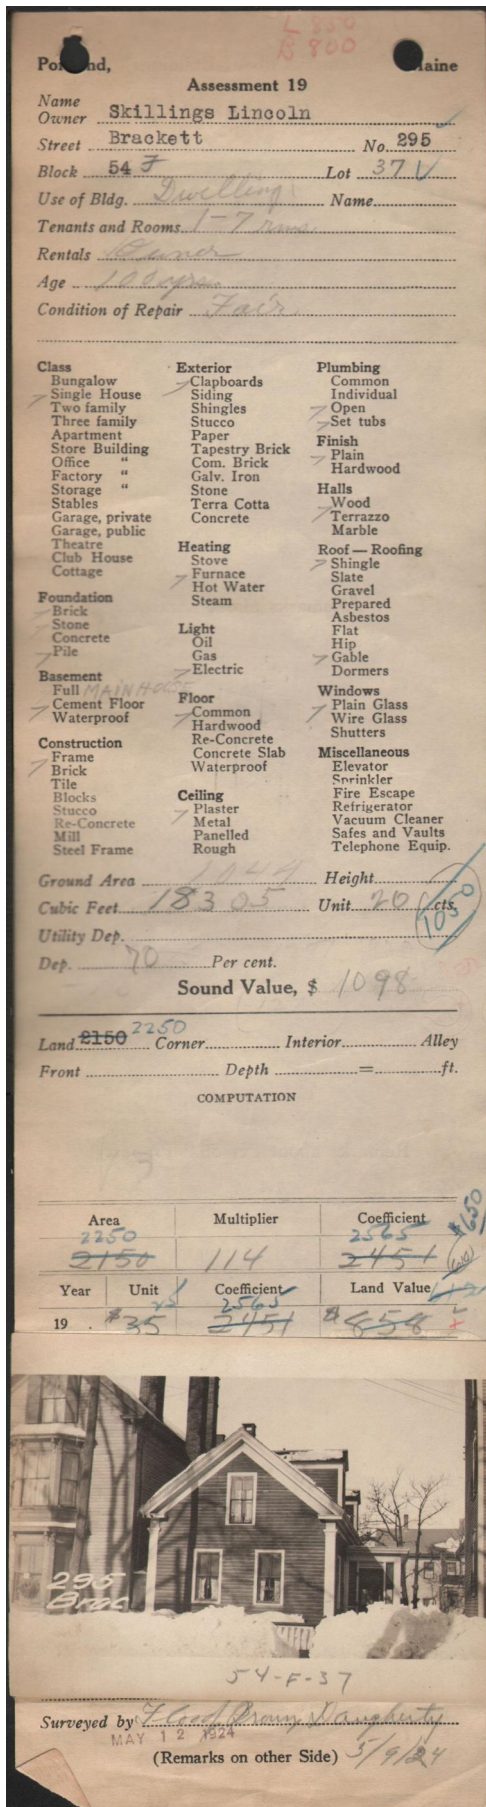 L 850
B 800
Portland, Maine
Assessment 19
Name
Owner Skillings Lincoln
Street Brackett No. 295
Block 54 F Lot 37
Use of Bldg. Dwelling Name
Tenants and Rooms 1-7 rms.
Rentals Owner
Age 100 yrs.
Condition of Repair Fair
Class
Bungalow
Single House
Two family
Three family
Apartment
Store Building
Office "
Factory "
Storage "
Stables
Garage, private
Garage, public
Theatre
Club House
Cottage
Foundation
Brick
Stone
Concrete
Pile
Basement
Full MAIN HOUSE
Cement Floor
Waterproof
Construction
Frame
Brick
Tile
Blocks
Stucco
Re-Concrete
Mill
Steel Frame
Exterior
Clapboards
Siding
Shingles
Stucco
Paper
Tapestry Brick
Com. Brick
Galv. Iron
Stone
Terra Cotta
Concrete
Heating
Stove
Furnace
Hot Water
Steam
Light
Oil
Gas
Electric
Floor
Common
Hardwood
Re-Concrete
Concrete Slab
Waterproof
Ceiling
Plaster
Metal
Panelled
Rough
Plumbing
Common
Individual
Open
Set tubs
Finish
Plain
Hardwood
Halls
Wood
Terrazzo
Marble
Roof — Roofing
Shingle
Slate
Gravel
Prepared
Asbestos
Flat
Hip
Gable
Dormers
Windows
Plain Glass
Wire Glass
Shutters
Miscellaneous
Elevator
Sprinkler
Fire Escape
Refrigerator
Vacuum Cleaner
Safes and Vaults
Telephone Equip.
Ground Area 1044 Height
Cubic Feet 18305 Unit 20 cts.
1050
Utility Dep.
Dep. 70 Per cent.
Sound Value, $ 1098
2250
Land 2150 Corner Interior Alley
Front Depth = ft.
COMPUTATION
Area Multiplier Coefficient
$650
2250 2565
2150 114 2451
Year Unit Coefficient Land Value
2565
19 . $35 2451 $858
295
Brac
54-F-37
Surveyed by Flood Brown Daugherty
MAY 12 1924
(Remarks on other Side) 5/9/24